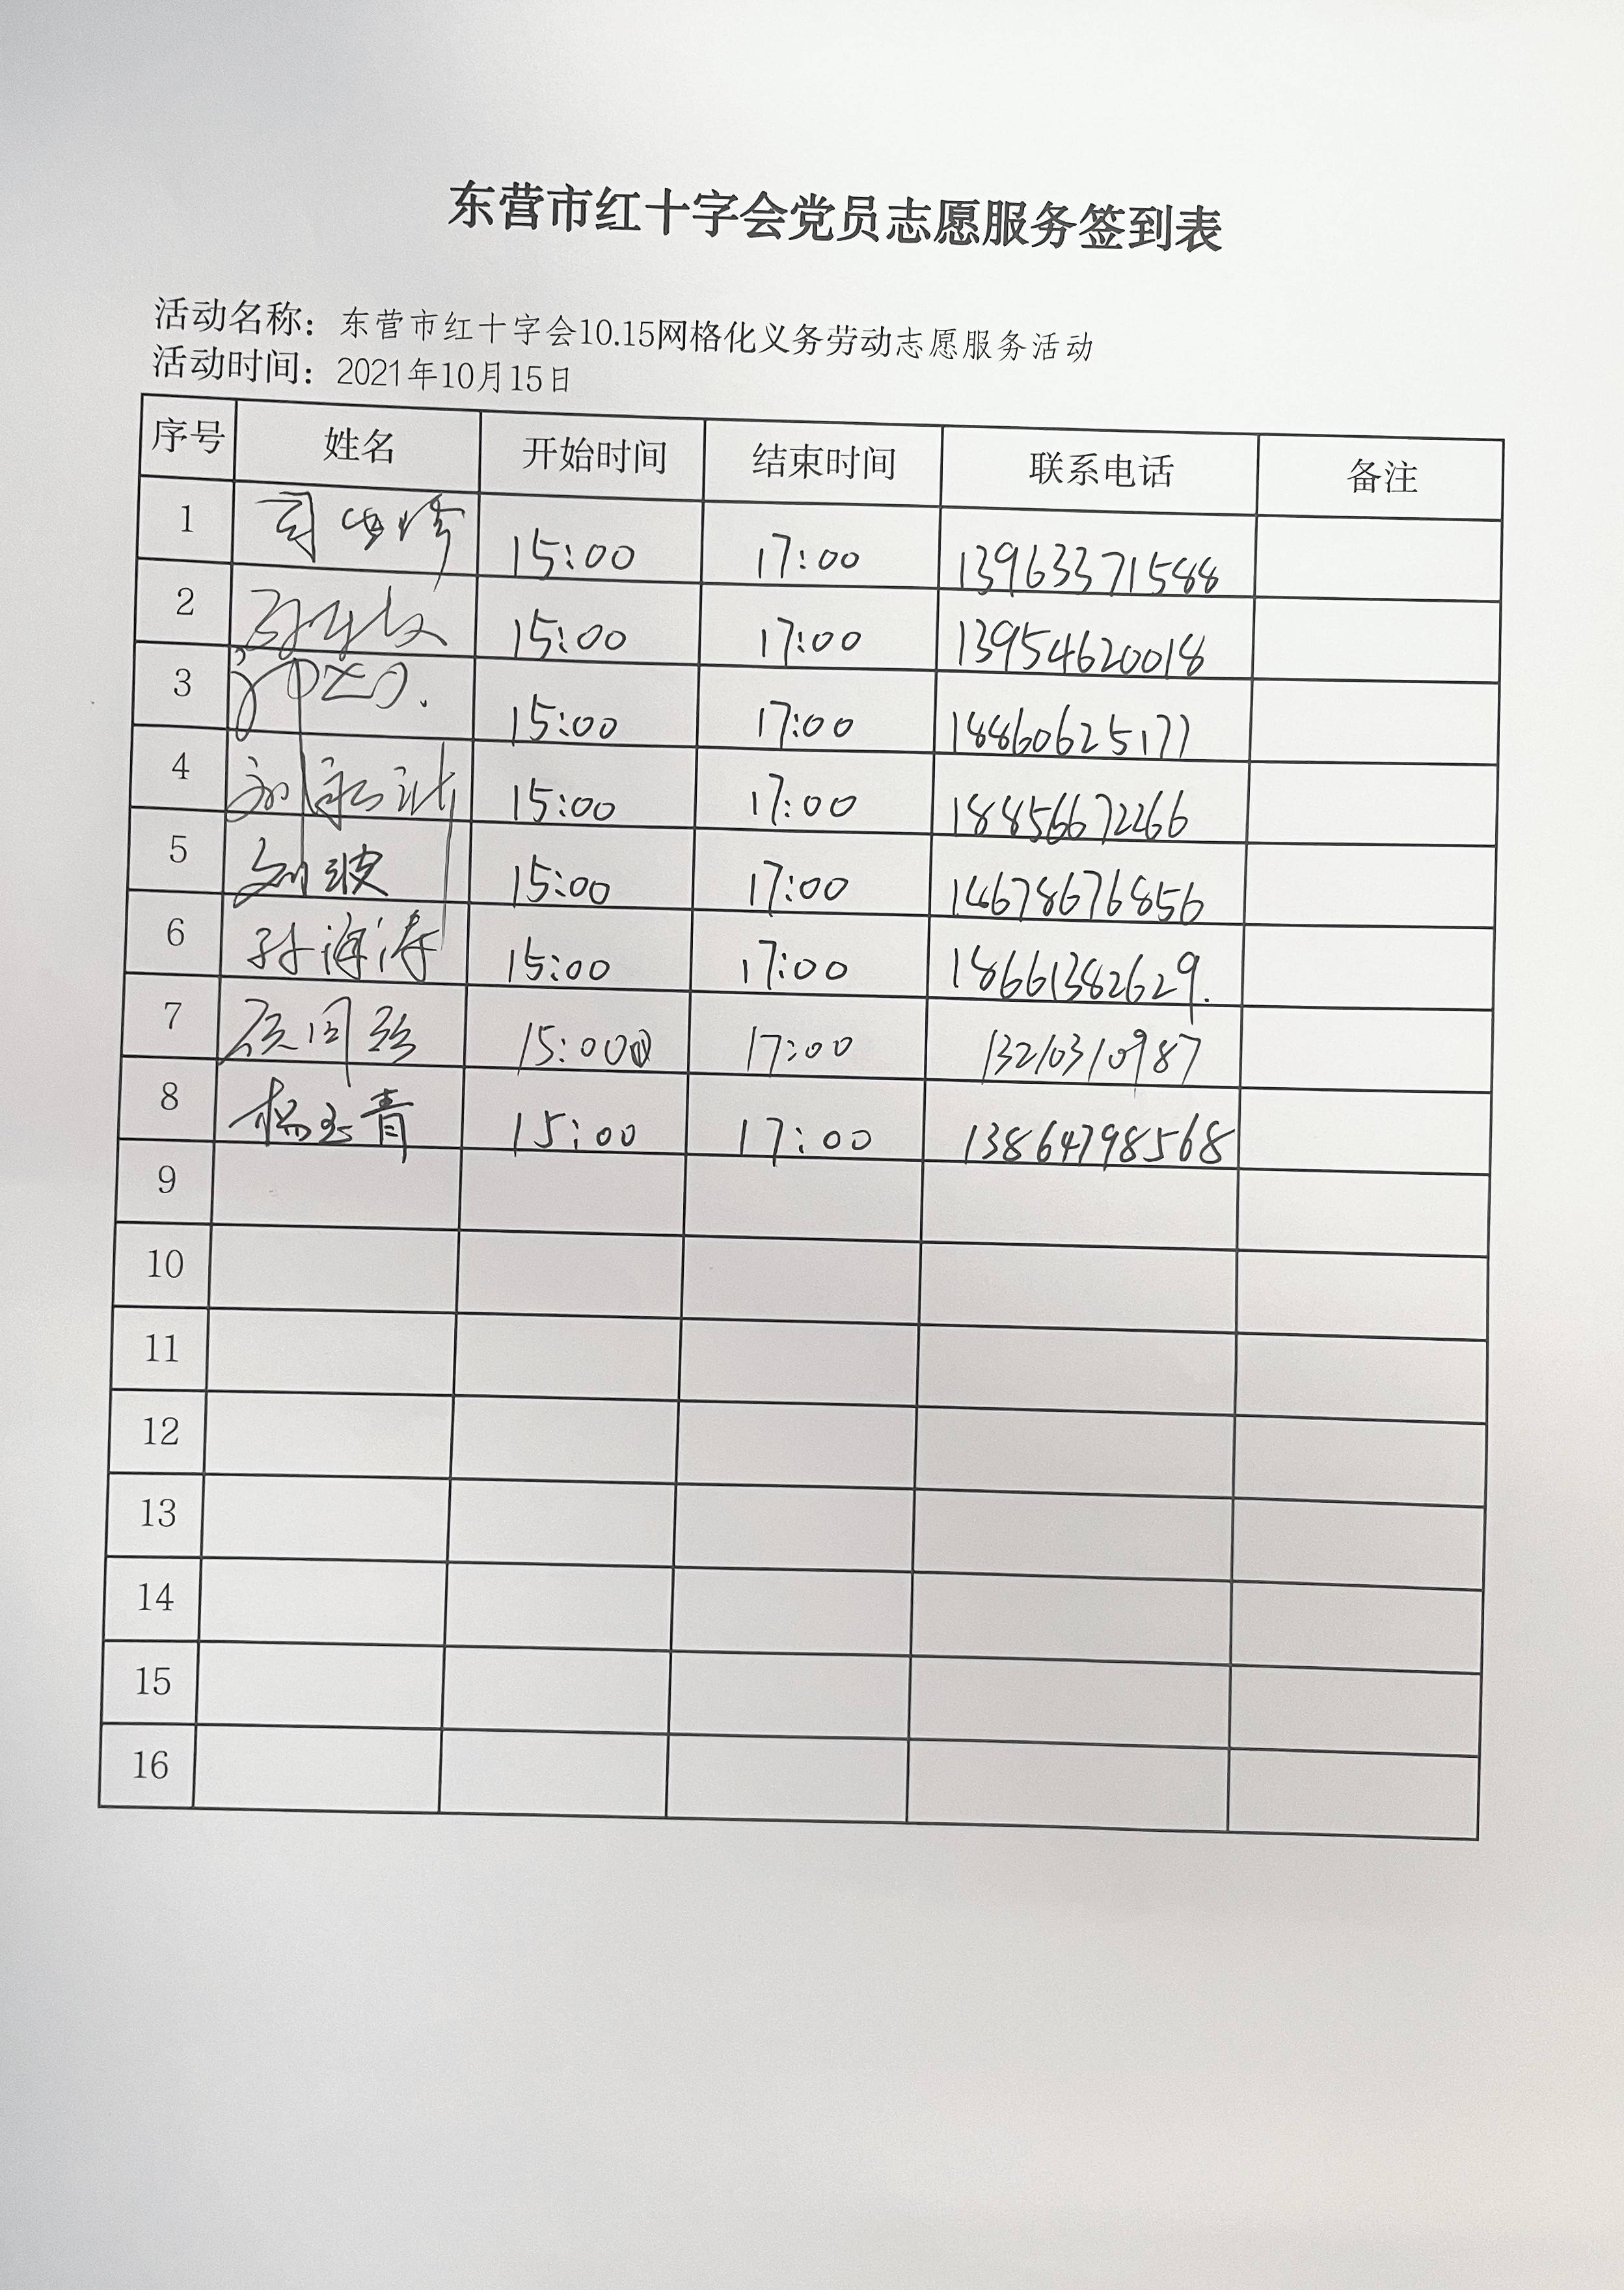 东营市红十字会党员志愿服务签到表
活动名称：东营市红十字会10.15网格化义务劳动志愿服务活动
活动时间：2021年10月15日
序号 姓名 开始时间 结束时间 联系电话 备注
1 15:00 17:00 13963371588
2 15:00 17:00 13954620018
3 15:00 17:00 18860625177
4 刘 15:00 17:00 18856672266
5 刘波 15:00 17:00 14678676856
6 孙海涛 15:00 17:00 18661382629.
7 15:00 17:00 13210310987
8 杨玉青 15:00 17:00 13864798568
9
10
11
12
13
14
15
16